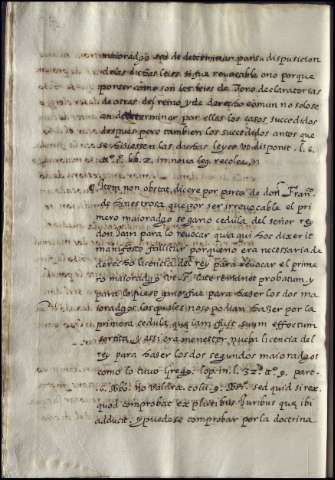 mayoradgo se a de determinar para su dispusicion
de las dichas leies si fue revocable o no porque
por ser como son las leies de Toro declaratorias
de otras del reino y de derecho comun no solo se
an de determinar por ellas los casos succedidos
despues pero tambien los succedidos antes que
se hiciessen las dichas leyes ut disponit. l.
Item non obstat, dicere por parte de don Fran.
de hanestrosa que por ser irrevocable el pri
mero mayoradgo se gano cedula del señor rey
don Juan para lo revocar quia qui hoc dixerit
manifeste fallitur porque no era necesaria de
derecho licencia del rey para revocar el prime
ro mayoradgo ut s. late remanet probatum, y
para lo que se gano fue para hazer los dos ma
yoradgos los quales no se podian hazer por la
primera cedula quia iam fuit suum effectum
sortita, y assi era menester nueva licencia del
rey para hazer los dos segundos mayoradgos
como lo tuvo Grego. lop. in l.
no valdra. sed quid si rex
quod comprobat ex pluribus juribus que ibi
adducit, y puedese comprobar por la doctrina